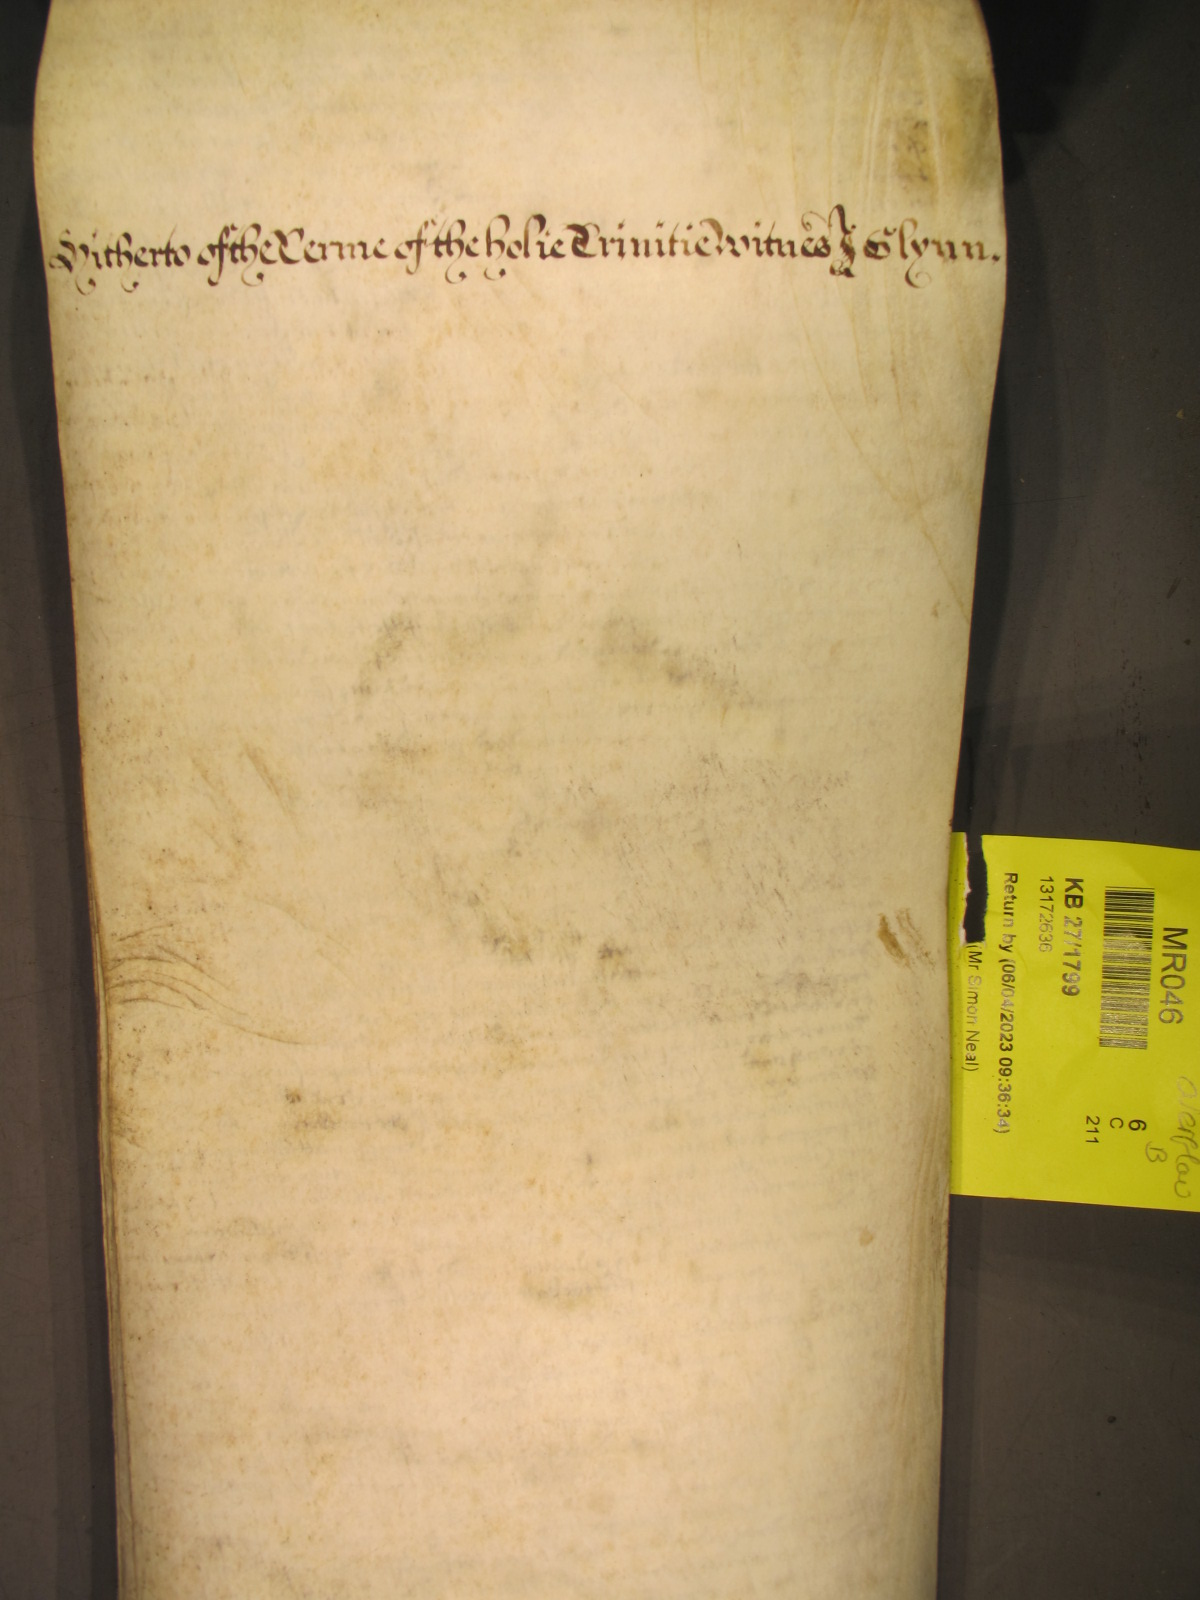 Hitherto of the Terme of the holie Trinitie witnes J Glynn.
MR046
overflow
B
6
C
211
KB 27/1799
13172636
Return by (06/04/2023 09:36:34)
(Mr Simon Neal)